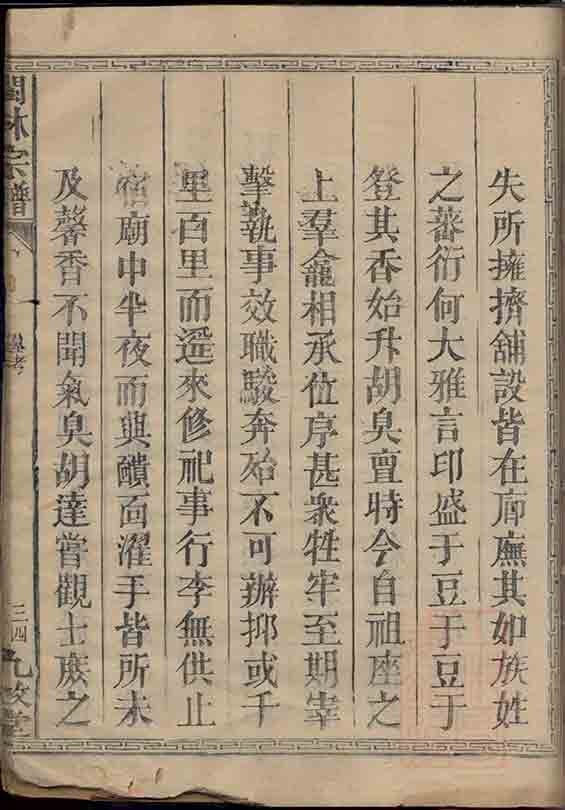 失所擁擠舖設皆在廊廡其如族姓
之蕃衍何大雅言印盛于豆于豆于
登其香始升胡臭亶時今自祖座之
上羣龕相承位序甚衆牲牢至期宰
擊執事效職駿奔殆不可辦抑或千
里百里而遥來修祀事行李無供止
宿廟中半夜而興靧面濯手皆所未
及馨香不聞氣臭胡達嘗觀士庶之
林宗譜
考
三四
九牧堂